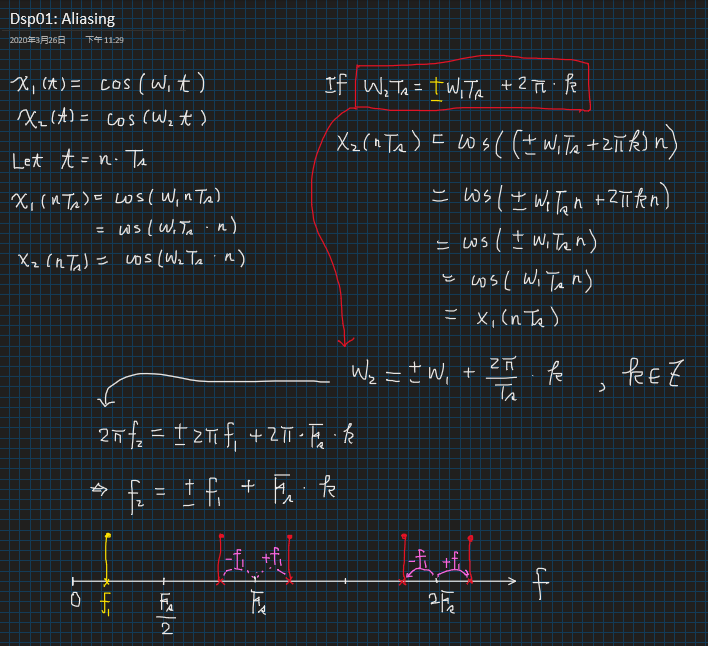 Dsp01: Aliasing
2020年3月26日 下午 11:29
x₁(t) = cos(ω₁t)
x₂(t) = cos(ω₂t)
Let t = n·Tₛ
x₁(nTₛ) = cos(ω₁nTₛ)
= cos(ω₁Tₛ·n)
x₂(nTₛ) = cos(ω₂Tₛ·n)
If ω₂Tₛ = ±ω₁Tₛ + 2π·k
x₂(nTₛ) = cos((±ω₁Tₛ+2πk)n)
= cos(±ω₁Tₛn+2πkn)
= cos(±ω₁Tₛn)
= cos(ω₁Tₛn)
= x₁(nTₛ)
ω₂ = ±ω₁ + 2π/Tₛ · k , k∈Z
2πf₂ = ±2πf₁ + 2π·Fₛ·k
⇒ f₂ = ±f₁ + Fₛ·k
-f₁ +f₁ -f₁ +f₁
0 f₁ Fₛ/2 Fₛ 2Fₛ f